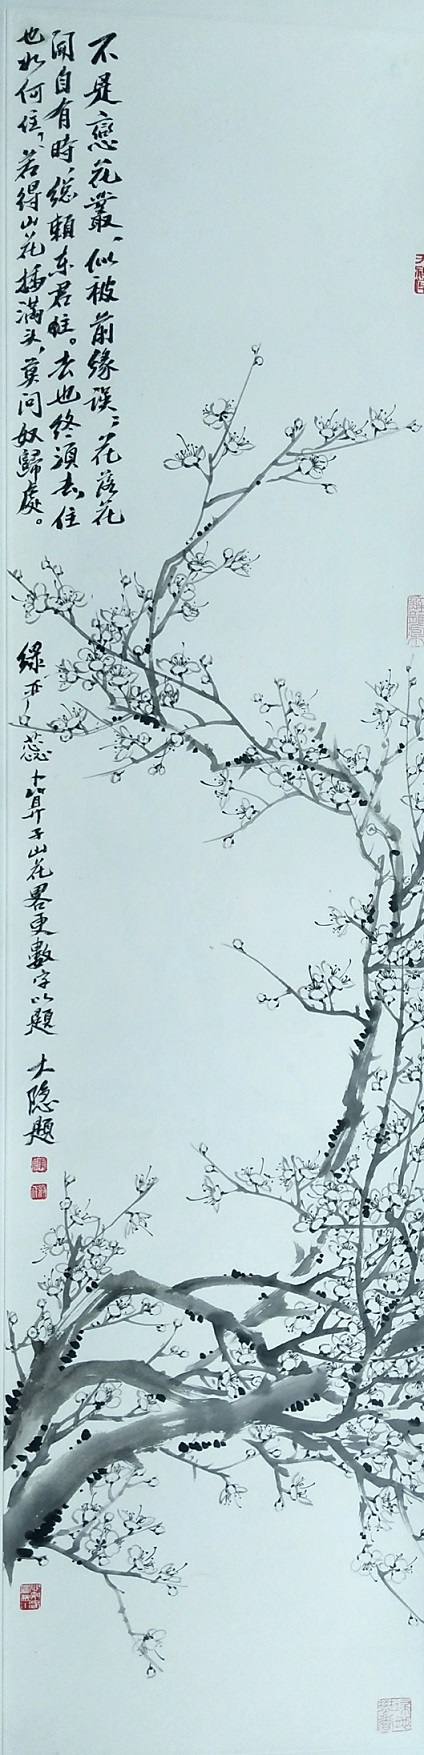 不是戀花叢、似被前緣誤。花落花
開自有時、總賴东君。去也終須去、住
也如何住。若得山花插滿头、莫问奴歸處。
緑 蕊卜算子山花畧更數字以題 大隐題